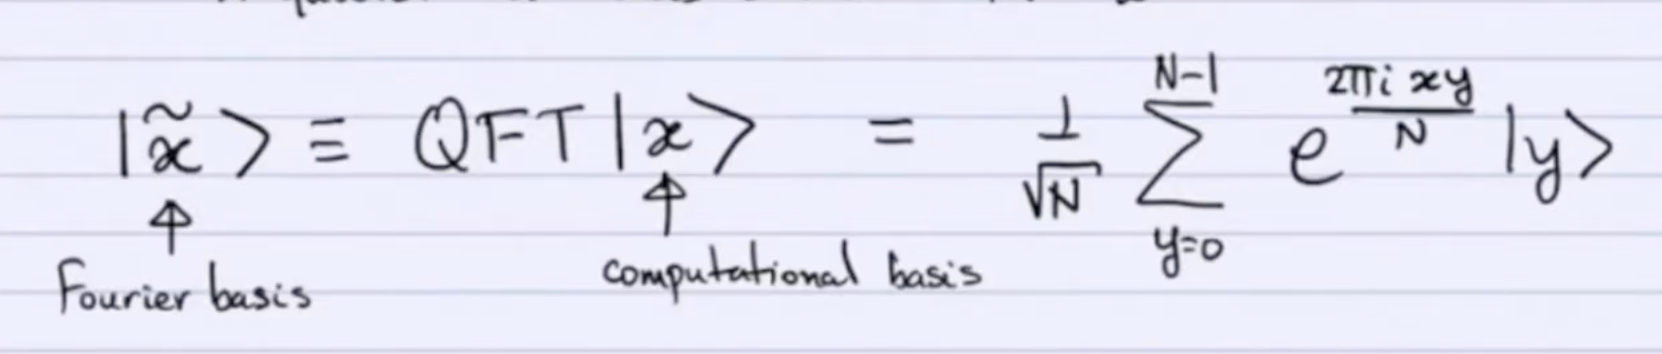 |x̃⟩ ≡ QFT|x⟩ = 1/√N ∑_{y=0}^{N-1} e^{2πi xy/N} |y⟩
Fourier basis computational basis